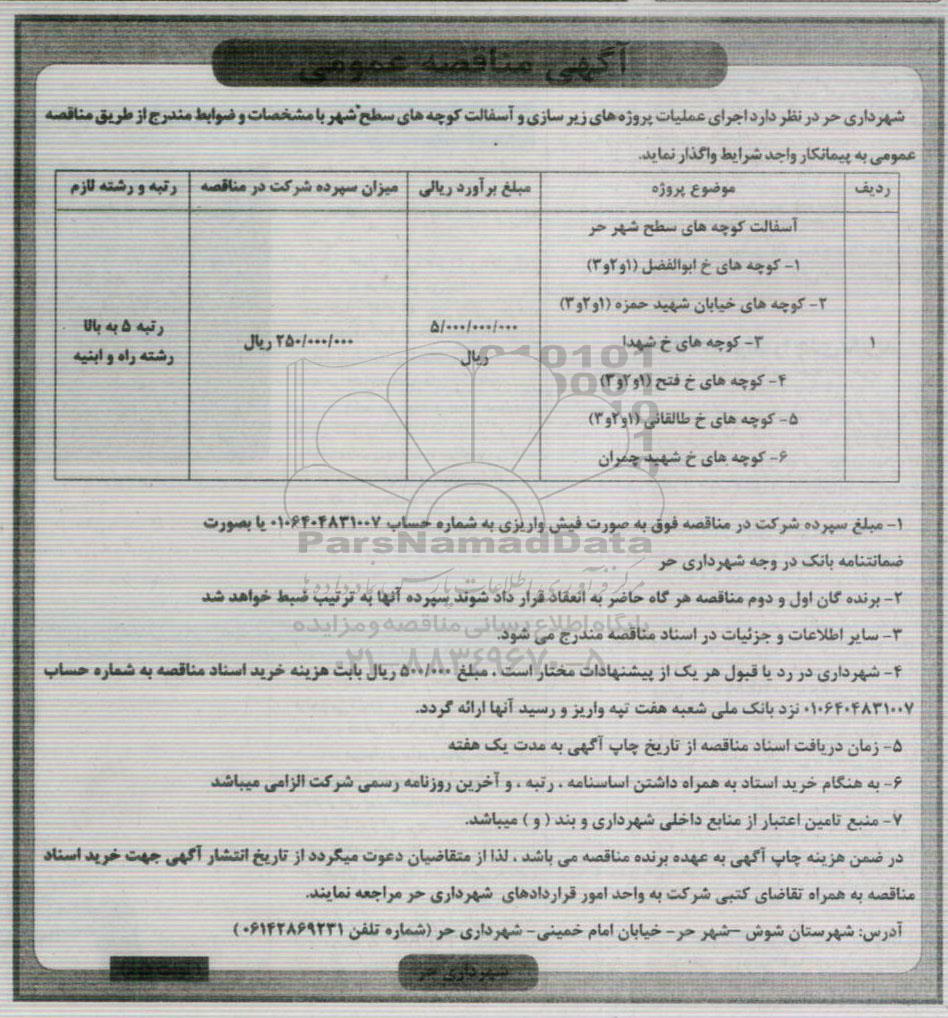 آگهی مناقصه عمومی
شهرداری حر در نظر دارد اجرای عملیات پروژه های زیر سازی و آسفالت کوچه های سطح شهر با مشخصات و ضوابط مندرج از طریق مناقصه
عمومی به پیمانکار واجد شرایط واگذار نماید.
ردیف موضوع پروژه مبلغ برآورد ریالی میزان سپرده شرکت در مناقصه رتبه و رشته لازم
آسفالت کوچه های سطح شهر حر
۱- کوچه های خ ابوالفضل (۱و۲و۳)
۲- کوچه های خیابان شهید حمزه (۱و۲و۳)
۱ ۳- کوچه های خ شهدا ۵/۰۰۰/۰۰۰/۰۰۰ ریال ۲۵۰/۰۰۰/۰۰۰ ریال رتبه ۵ به بالا رشته راه و ابنیه
۴- کوچه های خ فتح (۱و۲و۳)
۵- کوچه های خ طالقانی (۱و۲و۳)
۶- کوچه های خ شهید چمران
۱- مبلغ سپرده شرکت در مناقصه فوق به صورت فیش واریزی به شماره حساب ۰۱۰۶۴۰۴۸۳۱۰۰۷ یا بصورت
ParsNamadData
ضمانتنامه بانک در وجه شهرداری حر
مرکز فرآوری اطلاعات پارس نماد داده ها
۲- برنده گان اول و دوم مناقصه هر گاه حاضر به انعقاد قرار داد شوند سپرده آنها به ترتیب ضبط خواهد شد
پایگاه اطلاع رسانی مناقصه و مزایده
۳- سایر اطلاعات و جزئیات در اسناد مناقصه مندرج می شود.
۰۲۱-۸۸۳۴۹۶۷۰-۵
۴- شهرداری در رد یا قبول هر یک از پیشنهادات مختار است ، مبلغ ۵۰۰/۰۰۰ ریال بابت هزینه خرید اسناد مناقصه به شماره حساب
۰۱۰۶۴۰۴۸۳۱۰۰۷ نزد بانک ملی شعبه هفت تپه واریز و رسید آنها ارائه گردد.
۵- زمان دریافت اسناد مناقصه از تاریخ چاپ آگهی به مدت یک هفته
۶- به هنگام خرید اسناد به همراه داشتن اساسنامه ، رتبه ، و آخرین روزنامه رسمی شرکت الزامی میباشد
۷- منبع تامین اعتبار از منابع داخلی شهرداری و بند ( و ) میباشد.
در ضمن هزینه چاپ آگهی به عهده برنده مناقصه می باشد ، لذا از متقاضیان دعوت میگردد از تاریخ انتشار آگهی جهت خرید اسناد
مناقصه به همراه تقاضای کتبی شرکت به واحد امور قراردادهای شهرداری حر مراجعه نمایند.
آدرس: شهرستان شوش –شهر حر- خیابان امام خمینی- شهرداری حر (شماره تلفن ۰۶۱۴۲۸۶۹۲۳۱)
شهرداری حر